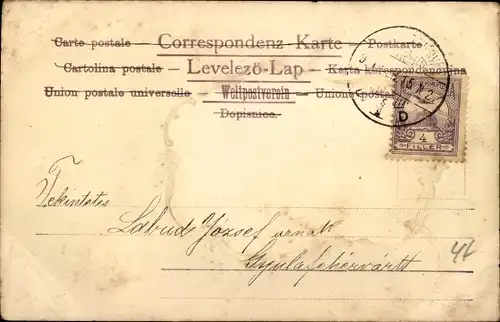 Carte postale Correspondenz-Karte Postkarte
Cartolina postale Levelező-Lap Karta korespondencyjna
Union postale universelle Weltpostverein Unione postale
Dopisnice.
4
FILLÉR
D
Tekintetes
Labud József urnak
Gyulafehérvártt